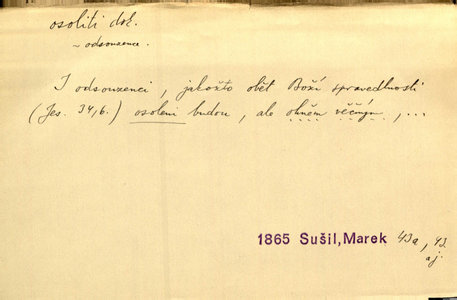 osoliti dok.
~ odsouzence.
I odsouzenci, jakožto oběť Boží spravedlnosti
(Jes. 34,6.) osoleni budou, ale ohněm věčným, ...
1865 Sušil, Marek 43a, 43.
aj.